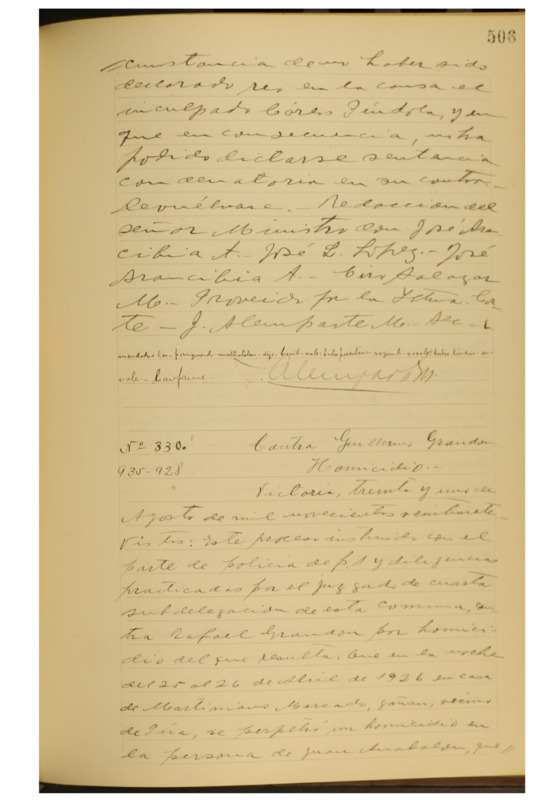 506
cunstancia de no haber sido
declarado reo en la causa el
inculpado Cárlos Píndola, y en
que en consecuencia, no ha
podido dictarse sentencia
condenatoria en su contra.
devuélvase. - Redaccion del
señor Ministro don José Aran
cibia A. - José L. Lopez. - José
Arancibia A. - Ciro Salazar
M. - Proveido por la Iltma. Cor
te - J. Alemparte M. Sec -
vale - Conforme
Alemparte M.
Nº 330.
935-928
Contra Guillermo Grandon
Homicidio. -
Victoria, treinta y uno de
Agosto de mil novecientos veintisiete.
Vistos: Este proceso instruido con el
parte de policia de f. 1 y diligencias
practicadas por el juzgado de cuarta
subdelegacion de esta comuna, con
tra Rafael Grandon por homici
dio del que resulta: Que en la noche
del 25 al 26 de Abril de 1926 en casa
de Maximiano Mercado, gañan, vecino
de Púa, se perpetró un homicidio en
la persona de Juan Anabalon, que